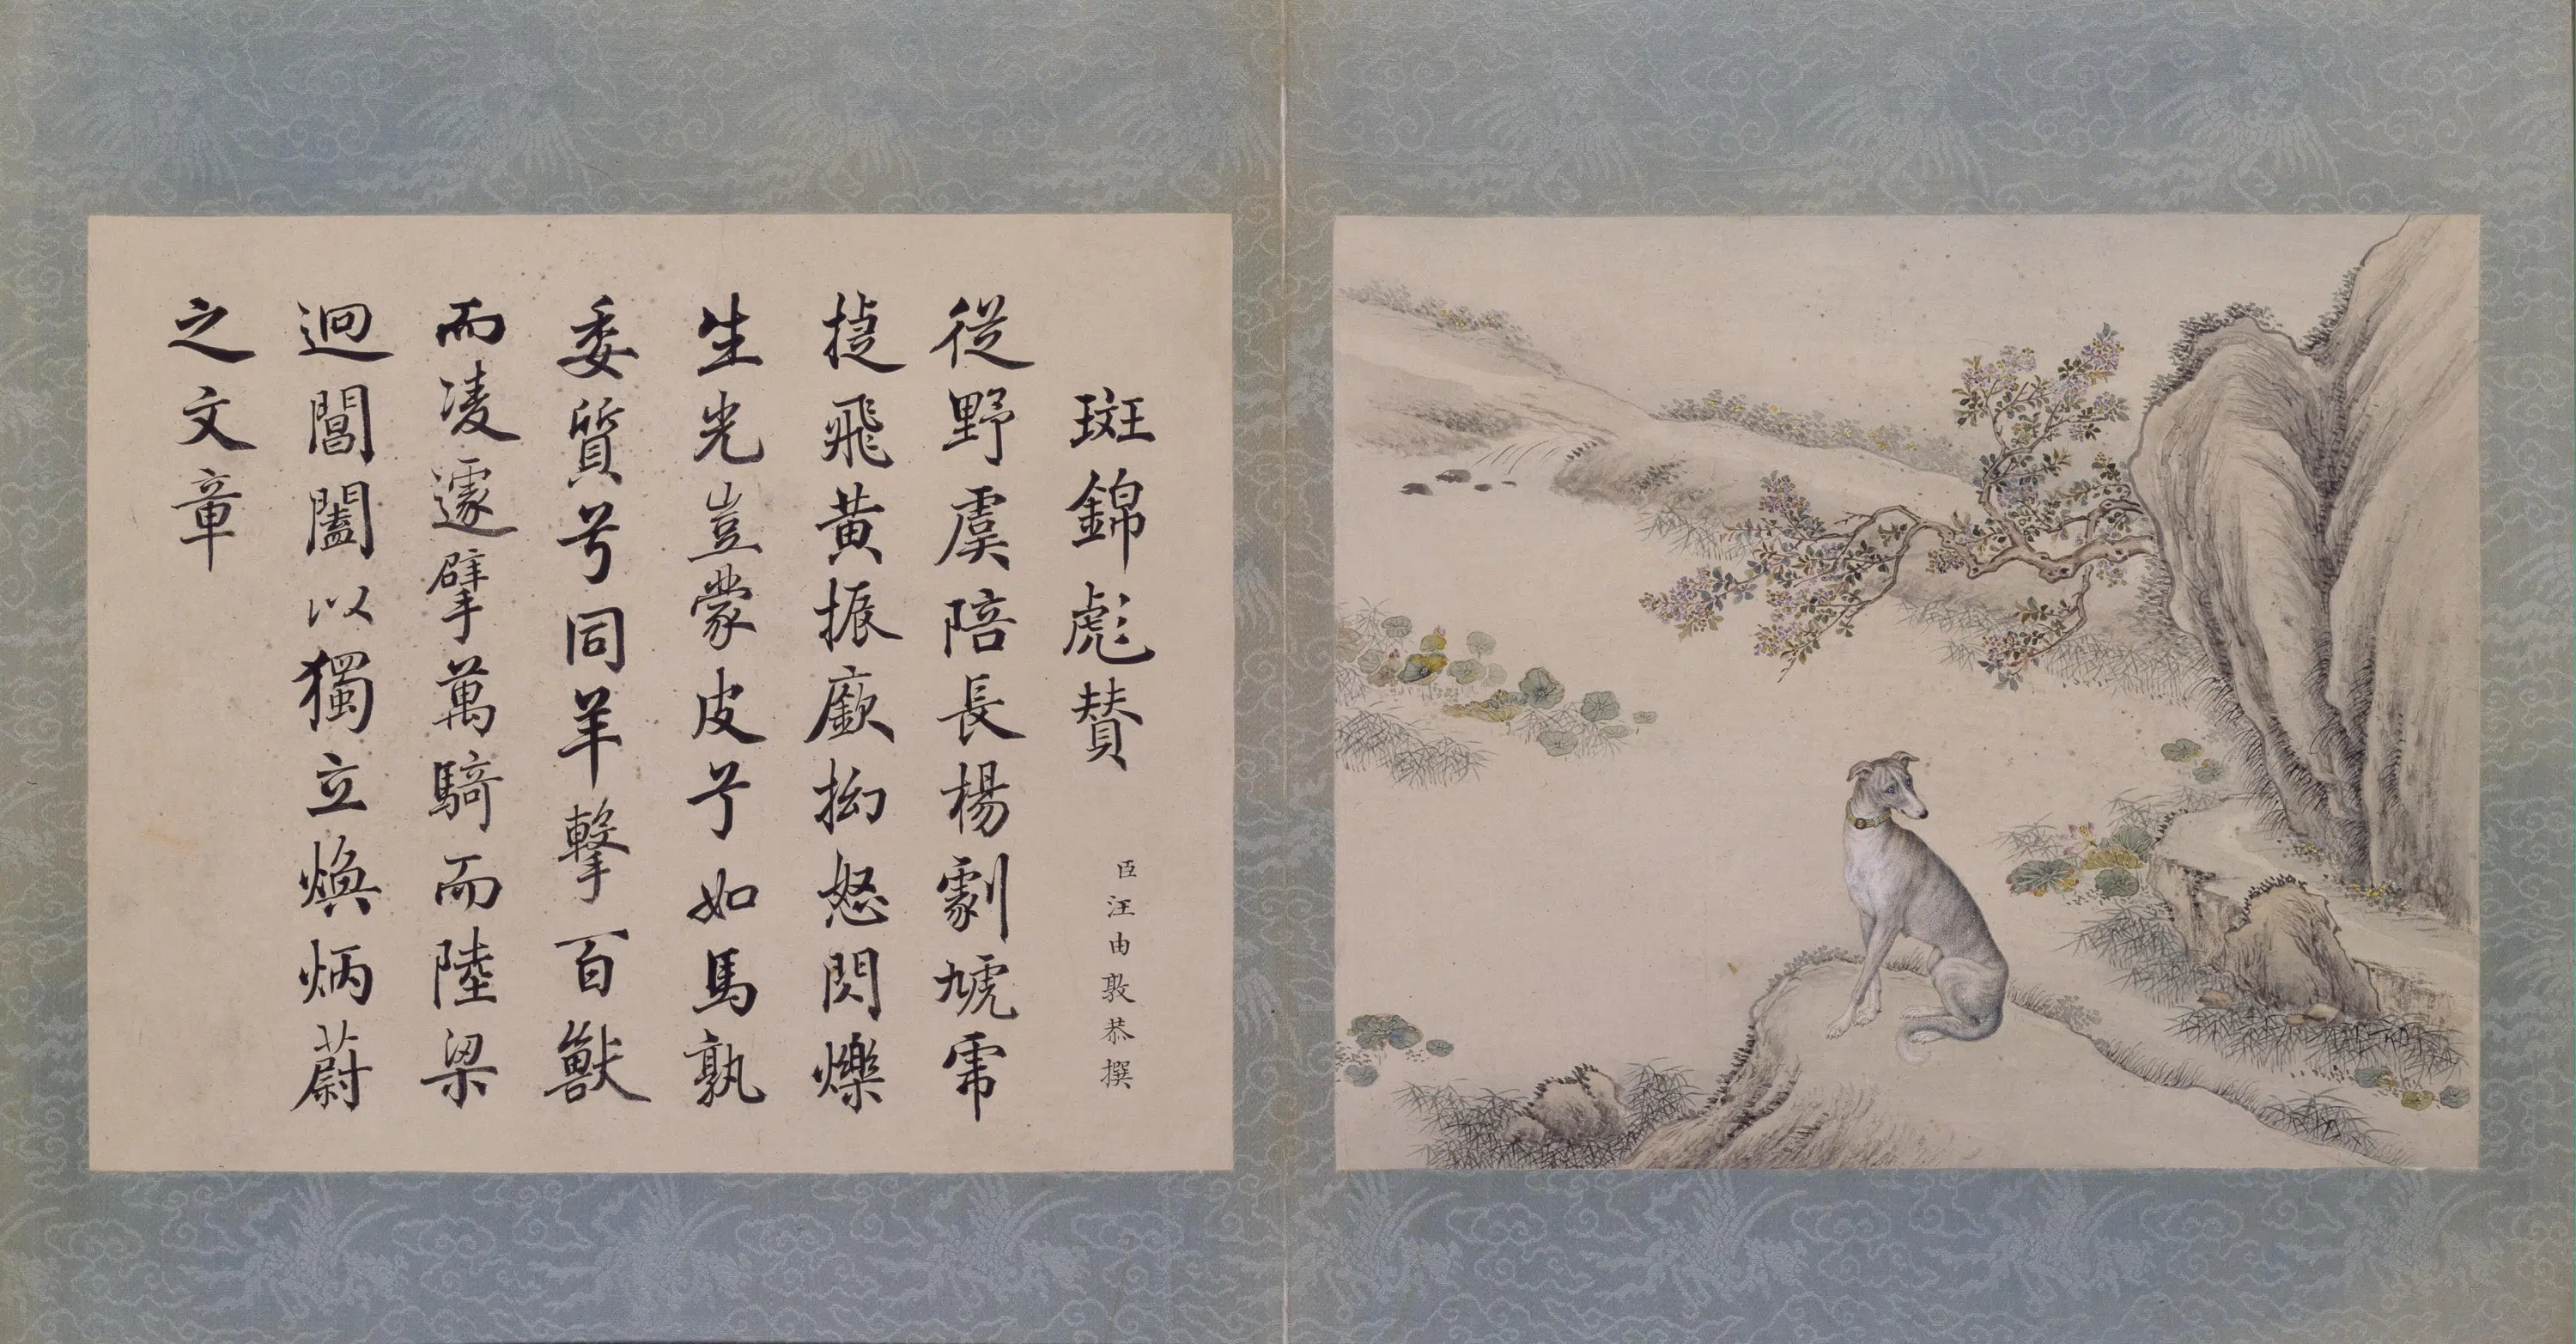 斑錦彪贊
臣汪由敦恭撰
從野虞陪長楊劇虓虎
揵飛黃振廞拗怒閃爍
生光豈蒙皮兮如馬孰
委質兮同羊擊百獸
而凌遽擘萬騎而陸梁
迴閶闔以獨立煥炳蔚
之文章